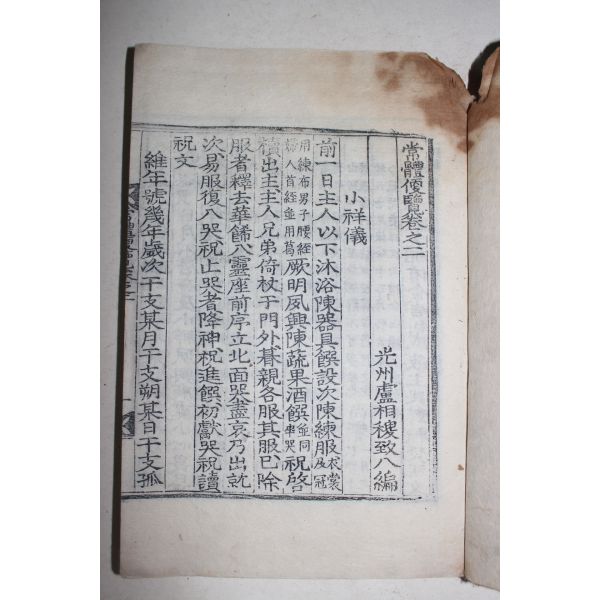 常體便覽卷之二
光州盧相稷致八編
小祥儀
前一日主人以下沐浴陳器具饌設次陳練服衣裳及冠
用練布男子腰絰婦人首絰並用葛厥明夙興陳蔬果酒饌並同卒哭祝啓
櫝出主主人兄弟倚杖于門外朞親各服其服已除
服者釋去華餙入靈座前序立北面哭盡哀乃出就
次易服復入哭祝止哭者降神祝進饌初獻哭祝讀
祝文
維年號幾年歲次干支某月干支朔某日干支孤